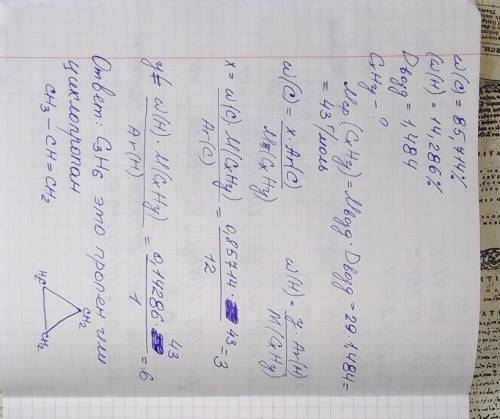 w(C) = 85,714%
w(H) = 14,286%
Dвозд = 1,484
CxHy - ?
M(CxHy) = Mвозд · Dвозд = 29 · 1,484 =
= 43 г/моль
w(C) = x · Ar(C) / M(CxHy)    w(H) = y · Ar(H) / M(CxHy)
x = w(C) · M(CxHy) / Ar(C) = 0,85714 · 43 / 12 = 3
y = w(H) · M(CxHy) / Ar(H) = 0,14286 · 43 / 1 = 6
Ответ: C3H6 это пропен или
циклопропан
CH3 – CH = CH2
CH2
H2C
CH2